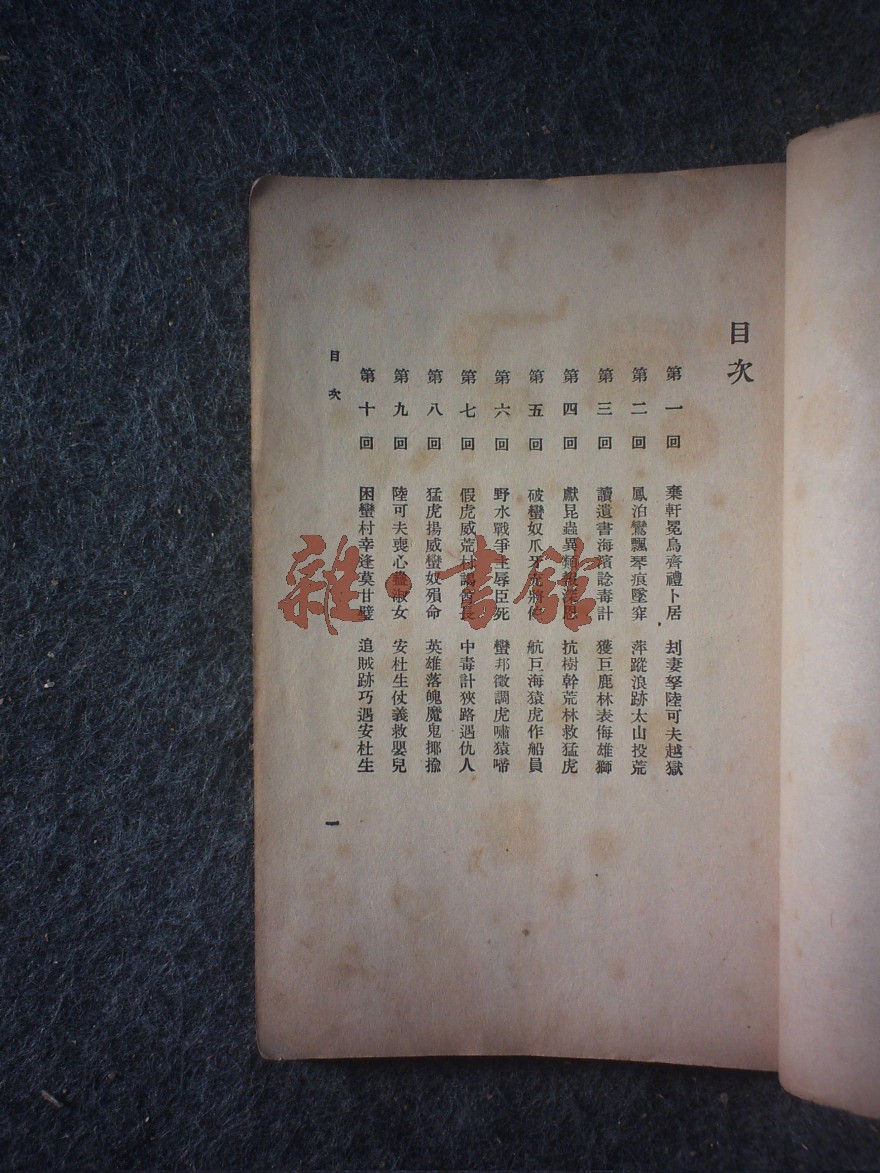 目次
第一回 棄軒冕烏齊禮卜居 刦妻孥陸可夫越獄
第二回 鳳泊鸞飄琴痕墜穽 萍蹤浪跡太山投荒
第三回 讀遺書海濱諗毒計 獲巨鹿林表侮雄獅
第四回 獻昆蟲異類報深恩 抗樹幹荒林救猛虎
第五回 破蠻奴爪牙充將 航巨海猿虎作船員
第六回 野水戰爭主辱臣死 蠻邦徵調虎嘯猿啼
第七回 假虎威荒村謁酋長 中毒計狹路遇仇人
第八回 猛虎揚威蠻奴殞命 英雄落魄魔鬼揶揄
第九回 陸可夫喪心蠱淑女 安杜生仗義救嬰兒
第十回 困蠻村幸逢莫甘璧 追賊跡巧遇安杜生
目次
一
雜·書館